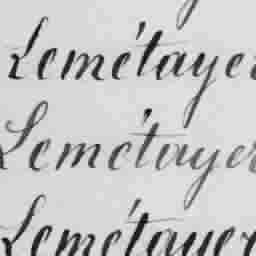 Lemétayer
Lemétayer
Lemétayer